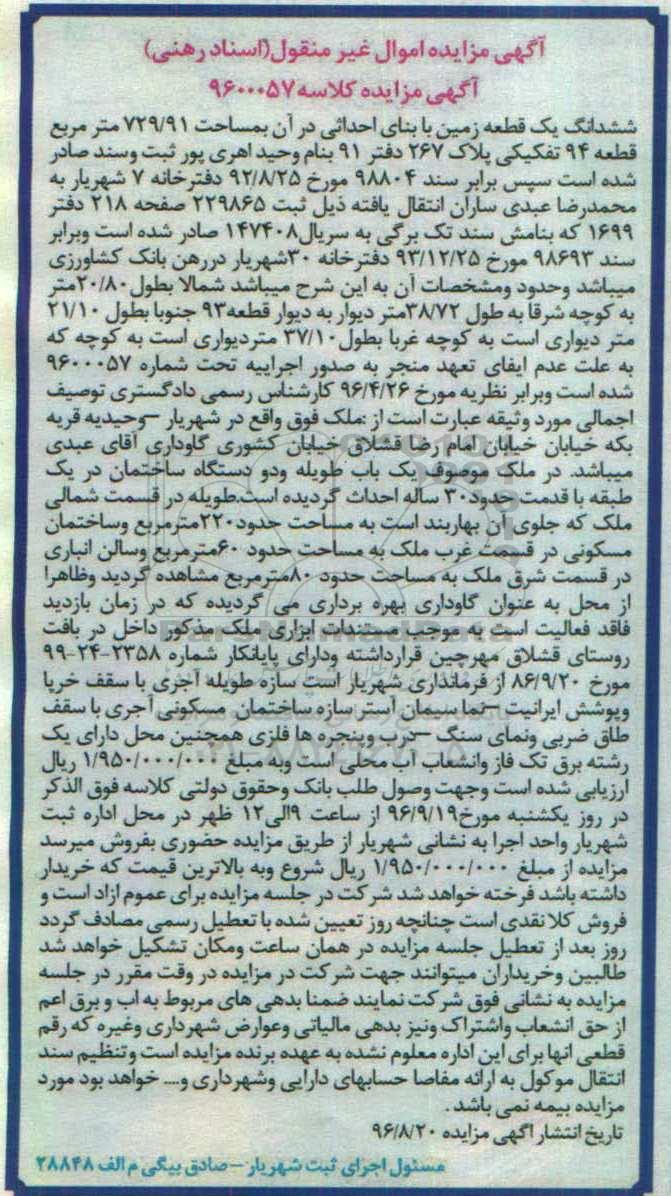 آگهی مزایده اموال غیر منقول(اسناد رهنی)
آگهی مزایده کلاسه ۹۶۰۰۰۵۷
ششدانگ یک قطعه زمین با بنای احداثی در آن بمساحت ۷۲۹/۹۱ متر مربع
قطعه ۹۴ تفکیکی پلاک ۲۶۷ دفتر ۹۱ بنام وحید اهری پور ثبت وسند صادر
شده است سپس برابر سند ۹۸۸۰۴ مورخ ۹۲/۸/۲۵ دفترخانه ۷ شهریار به
محمدرضا عبدی ساران انتقال یافته ذیل ثبت ۲۲۹۸۶۵ صفحه ۲۱۸ دفتر
۱۶۹۹ که بنامش سند تک برگی به سریال۱۴۷۴۰۸ صادر شده است وبرابر
سند ۹۸۶۹۳ مورخ ۹۳/۱۲/۲۵ دفترخانه ۳۰شهریار دررهن بانک کشاورزی
میباشد وحدود ومشخصات آن به این شرح میباشد شمالا بطول۲۰/۸۰متر
به کوچه شرقا به طول ۳۸/۷۲متر دیوار به دیوار قطعه۹۳ جنوبا بطول ۲۱/۱۰
متر دیواری است به کوچه غربا بطول۳۷/۱۰ متردیواری است به کوچه که
به علت عدم ایفای تعهد منجر به صدور اجراییه تحت شماره ۹۶۰۰۰۵۷
شده است وبرابر نظریه مورخ ۹۶/۴/۲۶ کارشناس رسمی دادگستری توصیف
اجمالی مورد وثیقه عبارت است از :ملک فوق واقع در شهریار –وحیدیه قریه
بکه خیابان خیابان امام رضا قشلاق خیابان کشوری گاوداری آقای عبدی
میباشد. در ملک موصوف یک باب طویله ودو دستگاه ساختمان در یک
طبقه با قدمت حدود۳۰ ساله احداث گردیده است.طویله در قسمت شمالی
ملک که جلوی آن بهاربند است به مساحت حدود۲۲۰مترمربع وساختمان
مسکونی در قسمت غرب ملک به مساحت حدود ۶۰مترمربع وسالن انباری
در قسمت شرق ملک به مساحت حدود ۸۰مترمربع مشاهده گردید وظاهرا
از محل به عنوان گاوداری بهره برداری می گردیده که در زمان بازدید
فاقد فعالیت است به موجب مستندات ابزاری ملک مذکور داخل در بافت
روستای قشلاق مهرچین قرارداشته ودارای پایانکار شماره ۲۳۵۸-۲۴-۹۹
مورخ ۸۶/۹/۲۰ از فرمانداری شهریار است سازه طویله آجری با سقف خرپا
وپوشش ایرانیت –نما سیمان آستر سازه ساختمان مسکونی آجری با سقف
طاق ضربی ونمای سنگ –درب وپنجره ها فلزی همچنین محل دارای یک
رشته برق تک فاز وانشعاب آب محلی است وبه مبلغ ۱/۹۵۰/۰۰۰/۰۰۰ ریال
ارزیابی شده است وجهت وصول طلب بانک وحقوق دولتی کلاسه فوق الذکر
در روز یکشنبه مورخ۹۶/۹/۱۹ از ساعت ۹الی۱۲ ظهر در محل اداره ثبت
شهریار واحد اجرا به نشانی شهریار از طریق مزایده حضوری بفروش میرسد
مزایده از مبلغ ۱/۹۵۰/۰۰۰/۰۰۰ ریال شروع وبه بالاترین قیمت که خریدار
داشته باشد فرخته خواهد شد شرکت در جلسه مزایده برای عموم ازاد است و
فروش کلا نقدی است چنانچه روز تعیین شده با تعطیل رسمی مصادف گردد
روز بعد از تعطیل جلسه مزایده در همان ساعت ومکان تشکیل خواهد شد
طالبین وخریداران میتوانند جهت شرکت در مزایده در وقت مقرر در جلسه
مزایده به نشانی فوق شرکت نمایند ضمنا بدهی های مربوط به اب و برق اعم
از حق انشعاب واشتراک ونیز بدهی مالیاتی وعوارض شهرداری وغیره که رقم
قطعی انها برای این اداره معلوم نشده به عهده برنده مزایده است وتنظیم سند
انتقال موکول به ارائه مفاصا حسابهای دارایی وشهرداری و.... خواهد بود مورد
مزایده بیمه نمی باشد .
تاریخ انتشار اگهی مزایده ۹۶/۸/۲۰
مسئول اجرای ثبت شهریار –صادق بیگی م الف ۲۸۸۴۸